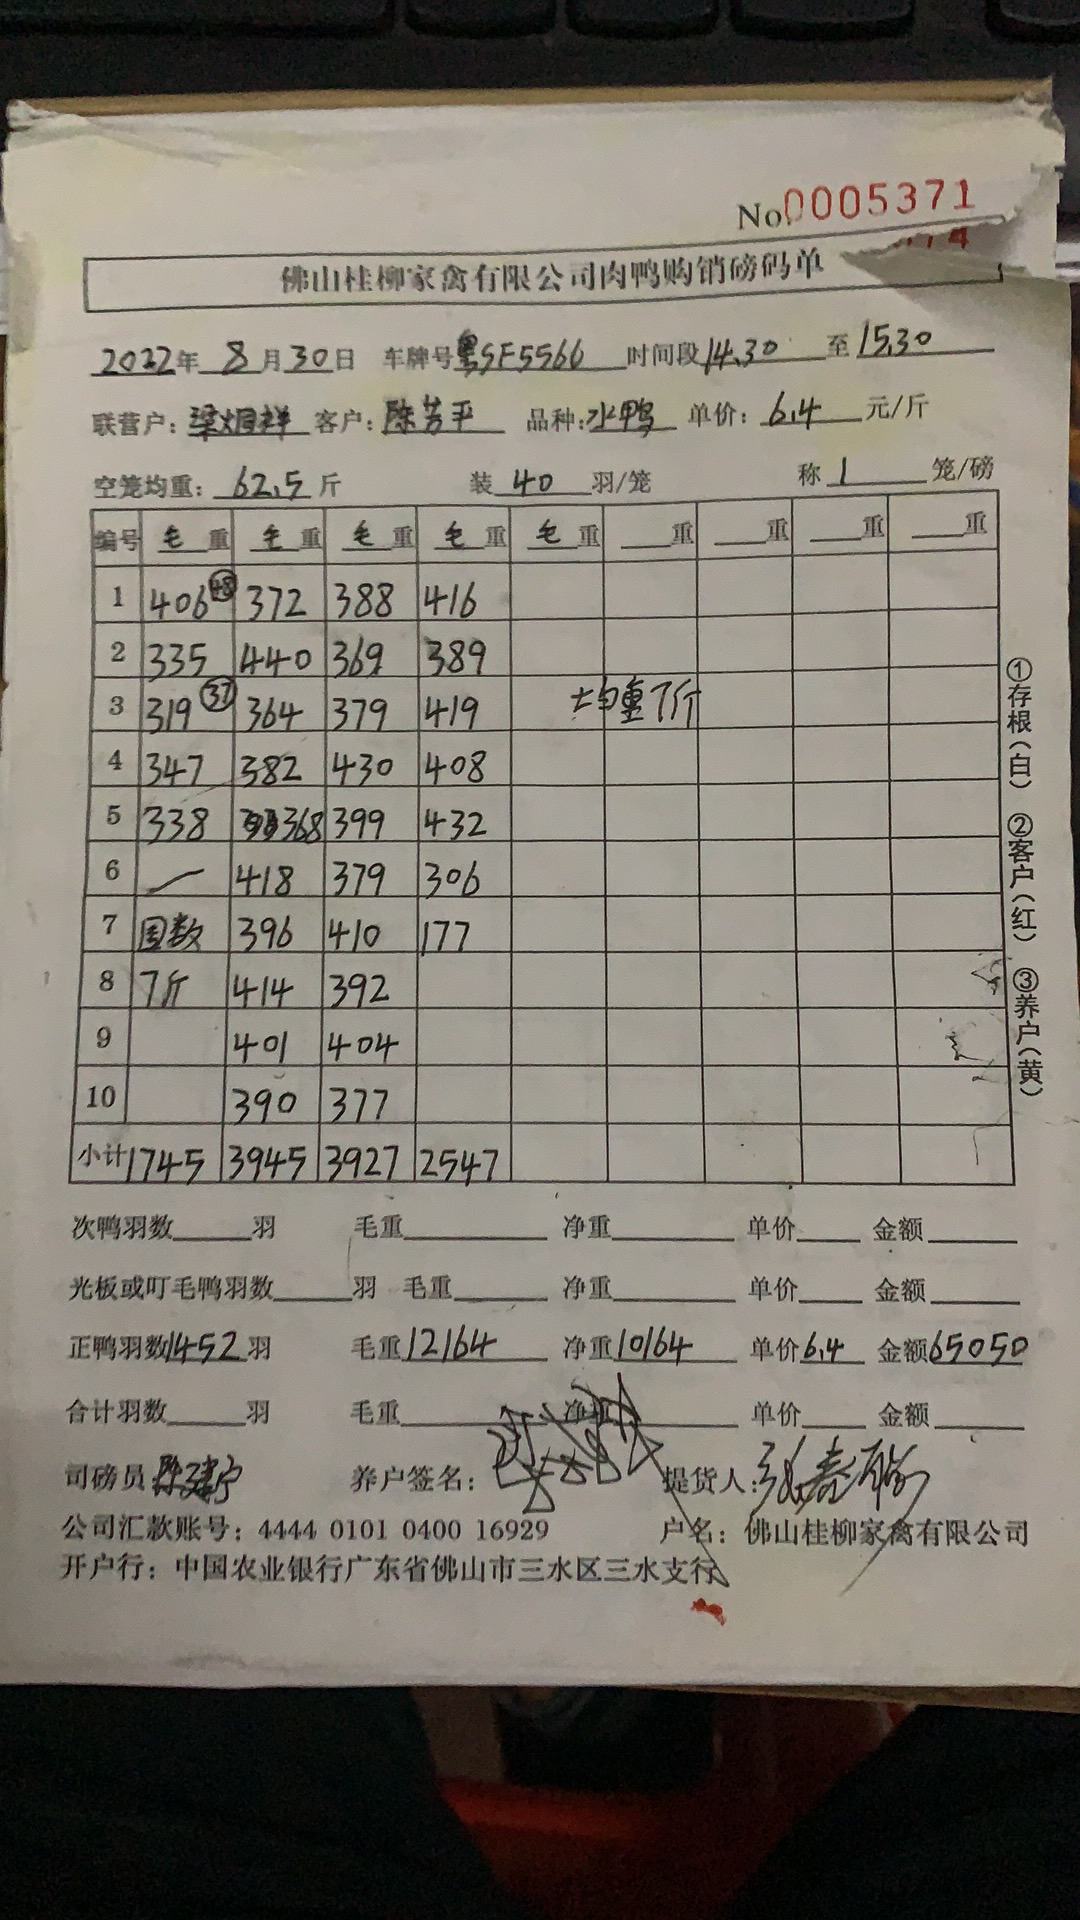 No.0005371
佛山桂柳家禽有限公司肉鸭购销磅码单
2022年 8月30日 车牌号粤SF5566 时间段14.30 至15.30
联营户: 客户:陈芳平 品种:水鸭 单价:6.4 元/斤
空笼均重:62.5斤 装40羽/笼 称1笼/磅
编号 毛重 毛重 毛重 毛重 毛重 重 重 重 重
1 406 48 372 388 416
2 335 440 369 389
3 319 37 364 379 419 均重7斤
4 347 382 430 408
5 338 368 399 432
6 一 418 379 306
7 固数 396 410 177
8 7斤 414 392
9 401 404
10 390 377
小计 1745 3945 3927 2547
次鸭羽数 羽 毛重 净重 单价 金额
光板或叮毛鸭羽数 羽 毛重 净重 单价 金额
正鸭羽数1452羽 毛重12164 净重10164 单价6.4 金额65050
合计羽数 羽 毛重 净重 单价 金额
司磅员 养户签名: 提货人:
公司汇款账号: 4444 0101 0400 16929 户名: 佛山桂柳家禽有限公司
开户行: 中国农业银行广东省佛山市三水区三水支行
①存根(白) ②客户(红) ③养户(黄)